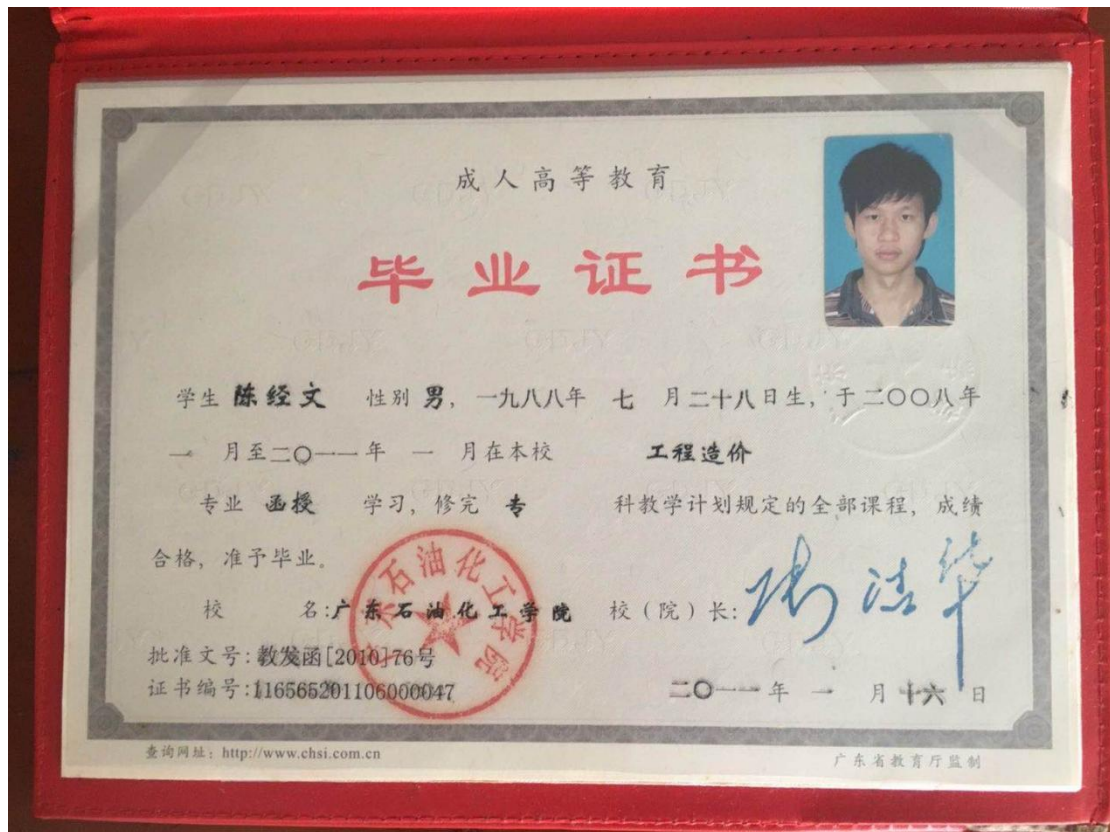 成人高等教育
毕业证书
学生 陈经文 性别 男，一九八八年 七 月二十八日生，于二〇〇八年
一 月至二〇一一年 一 月在本校 工程造价
专业 函授 学习，修完 专 科教学计划规定的全部课程，成绩
合格，准予毕业。
校 名:广东石油化工学院 校（院）长:
批准文号:教发函[2010]76号
证书编号:116565201106000047
二〇一一年 一 月十六日
查询网址：http://www.chsi.com.cn
广东省教育厅监制
广东石油化工学院